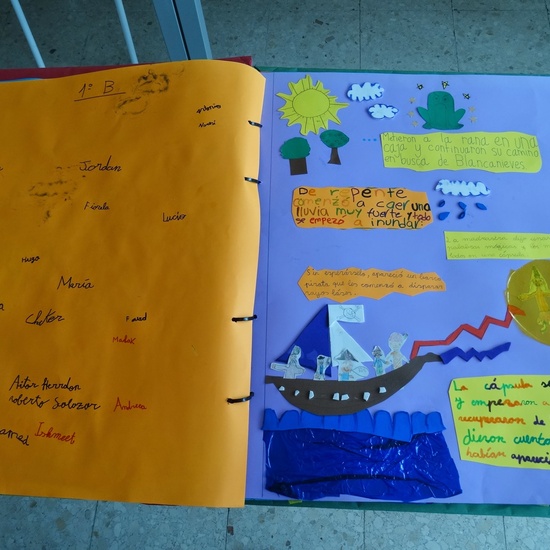 1º B.
Jordan
Fiorela
Lucía
Hugo
María
Malak
Aitor Herrdon
roberto Solozar
Andreea
Metieron a la rana en una
caja y continuaron su camino
en busca de Blancanieves
De repente
comenzó a caer una
lluvia muy fuerte y todo
se empezó a inundar.
Sin esperárselo, apareció un barco
pirata que les comenzó a disparar
rayos láser.
La cápsula se
y empezaron a
recuperaron de
dieron cuenta
habían apareci